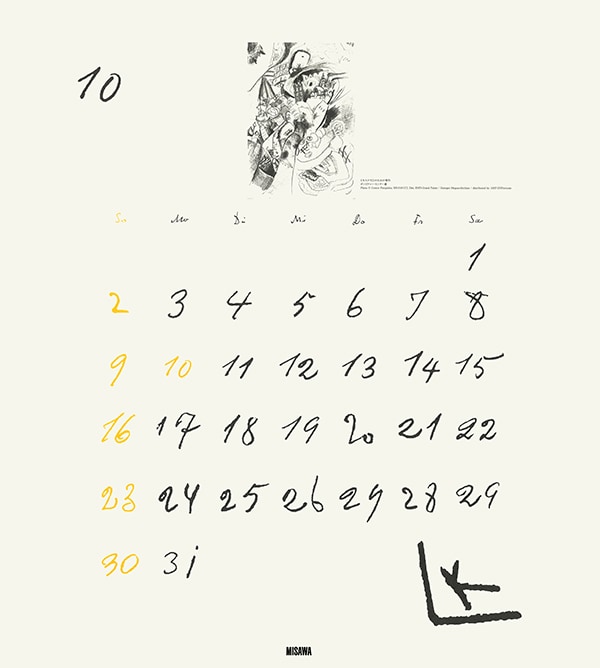 10
So Mo Di Mi Do Fr Sa
1
2 3 4 5 6 7 8
9 10 11 12 13 14 15
16 17 18 19 20 21 22
23 24 25 26 27 28 29
30 31
K
MISAWA